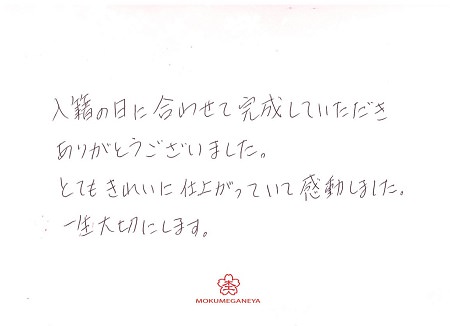 入籍の日に合わせて完成していただき
ありがとうございました。
とてもきれいに仕上がっていて感動しました。
一生大切にします。
MOKUMEGANEYA